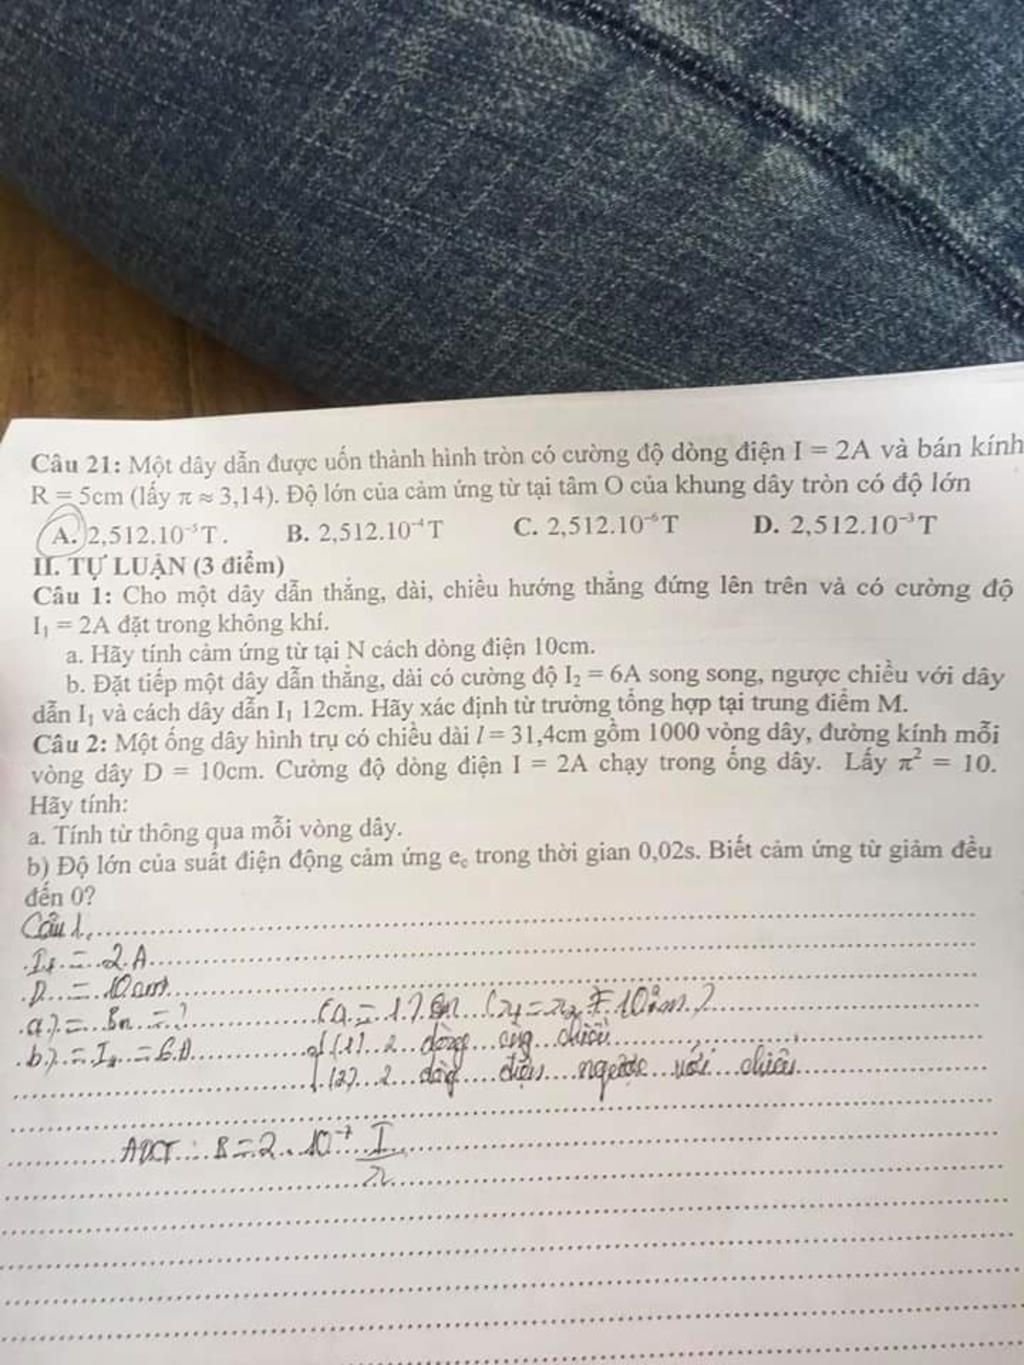 Câu 21: Một dây dẫn được uốn thành hình tròn có cường độ dòng điện I = 2A và bán kính
R = 5cm (lấy π ≈ 3,14). Độ lớn của cảm ứng từ tại tâm O của khung dây tròn có độ lớn
A. 2,512.10⁻⁵T. B. 2,512.10⁻⁴T C. 2,512.10⁻⁶T D. 2,512.10⁻³T
II. TỰ LUẬN (3 điểm)
Câu 1: Cho một dây dẫn thẳng, dài, chiều hướng thẳng đứng lên trên và có cường độ
I₁ = 2A đặt trong không khí.
a. Hãy tính cảm ứng từ tại N cách dòng điện 10cm.
b. Đặt tiếp một dây dẫn thẳng, dài có cường độ I₂ = 6A song song, ngược chiều với dây
dẫn I₁ và cách dây dẫn I₁ 12cm. Hãy xác định từ trường tổng hợp tại trung điểm M.
Câu 2: Một ống dây hình trụ có chiều dài l = 31,4cm gồm 1000 vòng dây, đường kính mỗi
vòng dây D = 10cm. Cường độ dòng điện I = 2A chạy trong ống dây. Lấy π² = 10.
Hãy tính:
a. Tính từ thông qua mỗi vòng dây.
b) Độ lớn của suất điện động cảm ứng e꜀ trong thời gian 0,02s. Biết cảm ứng từ giảm đều
đến 0?
Câu 1.
I₁ = 2 A
= 10 cm
a) = Bn = ?
b) = I₂ = 6A
(1) 2 dòng cùng chiều
(2) 2 dòng điện ngược với chiều
ADCT : B = 2.10⁻⁷ I
r